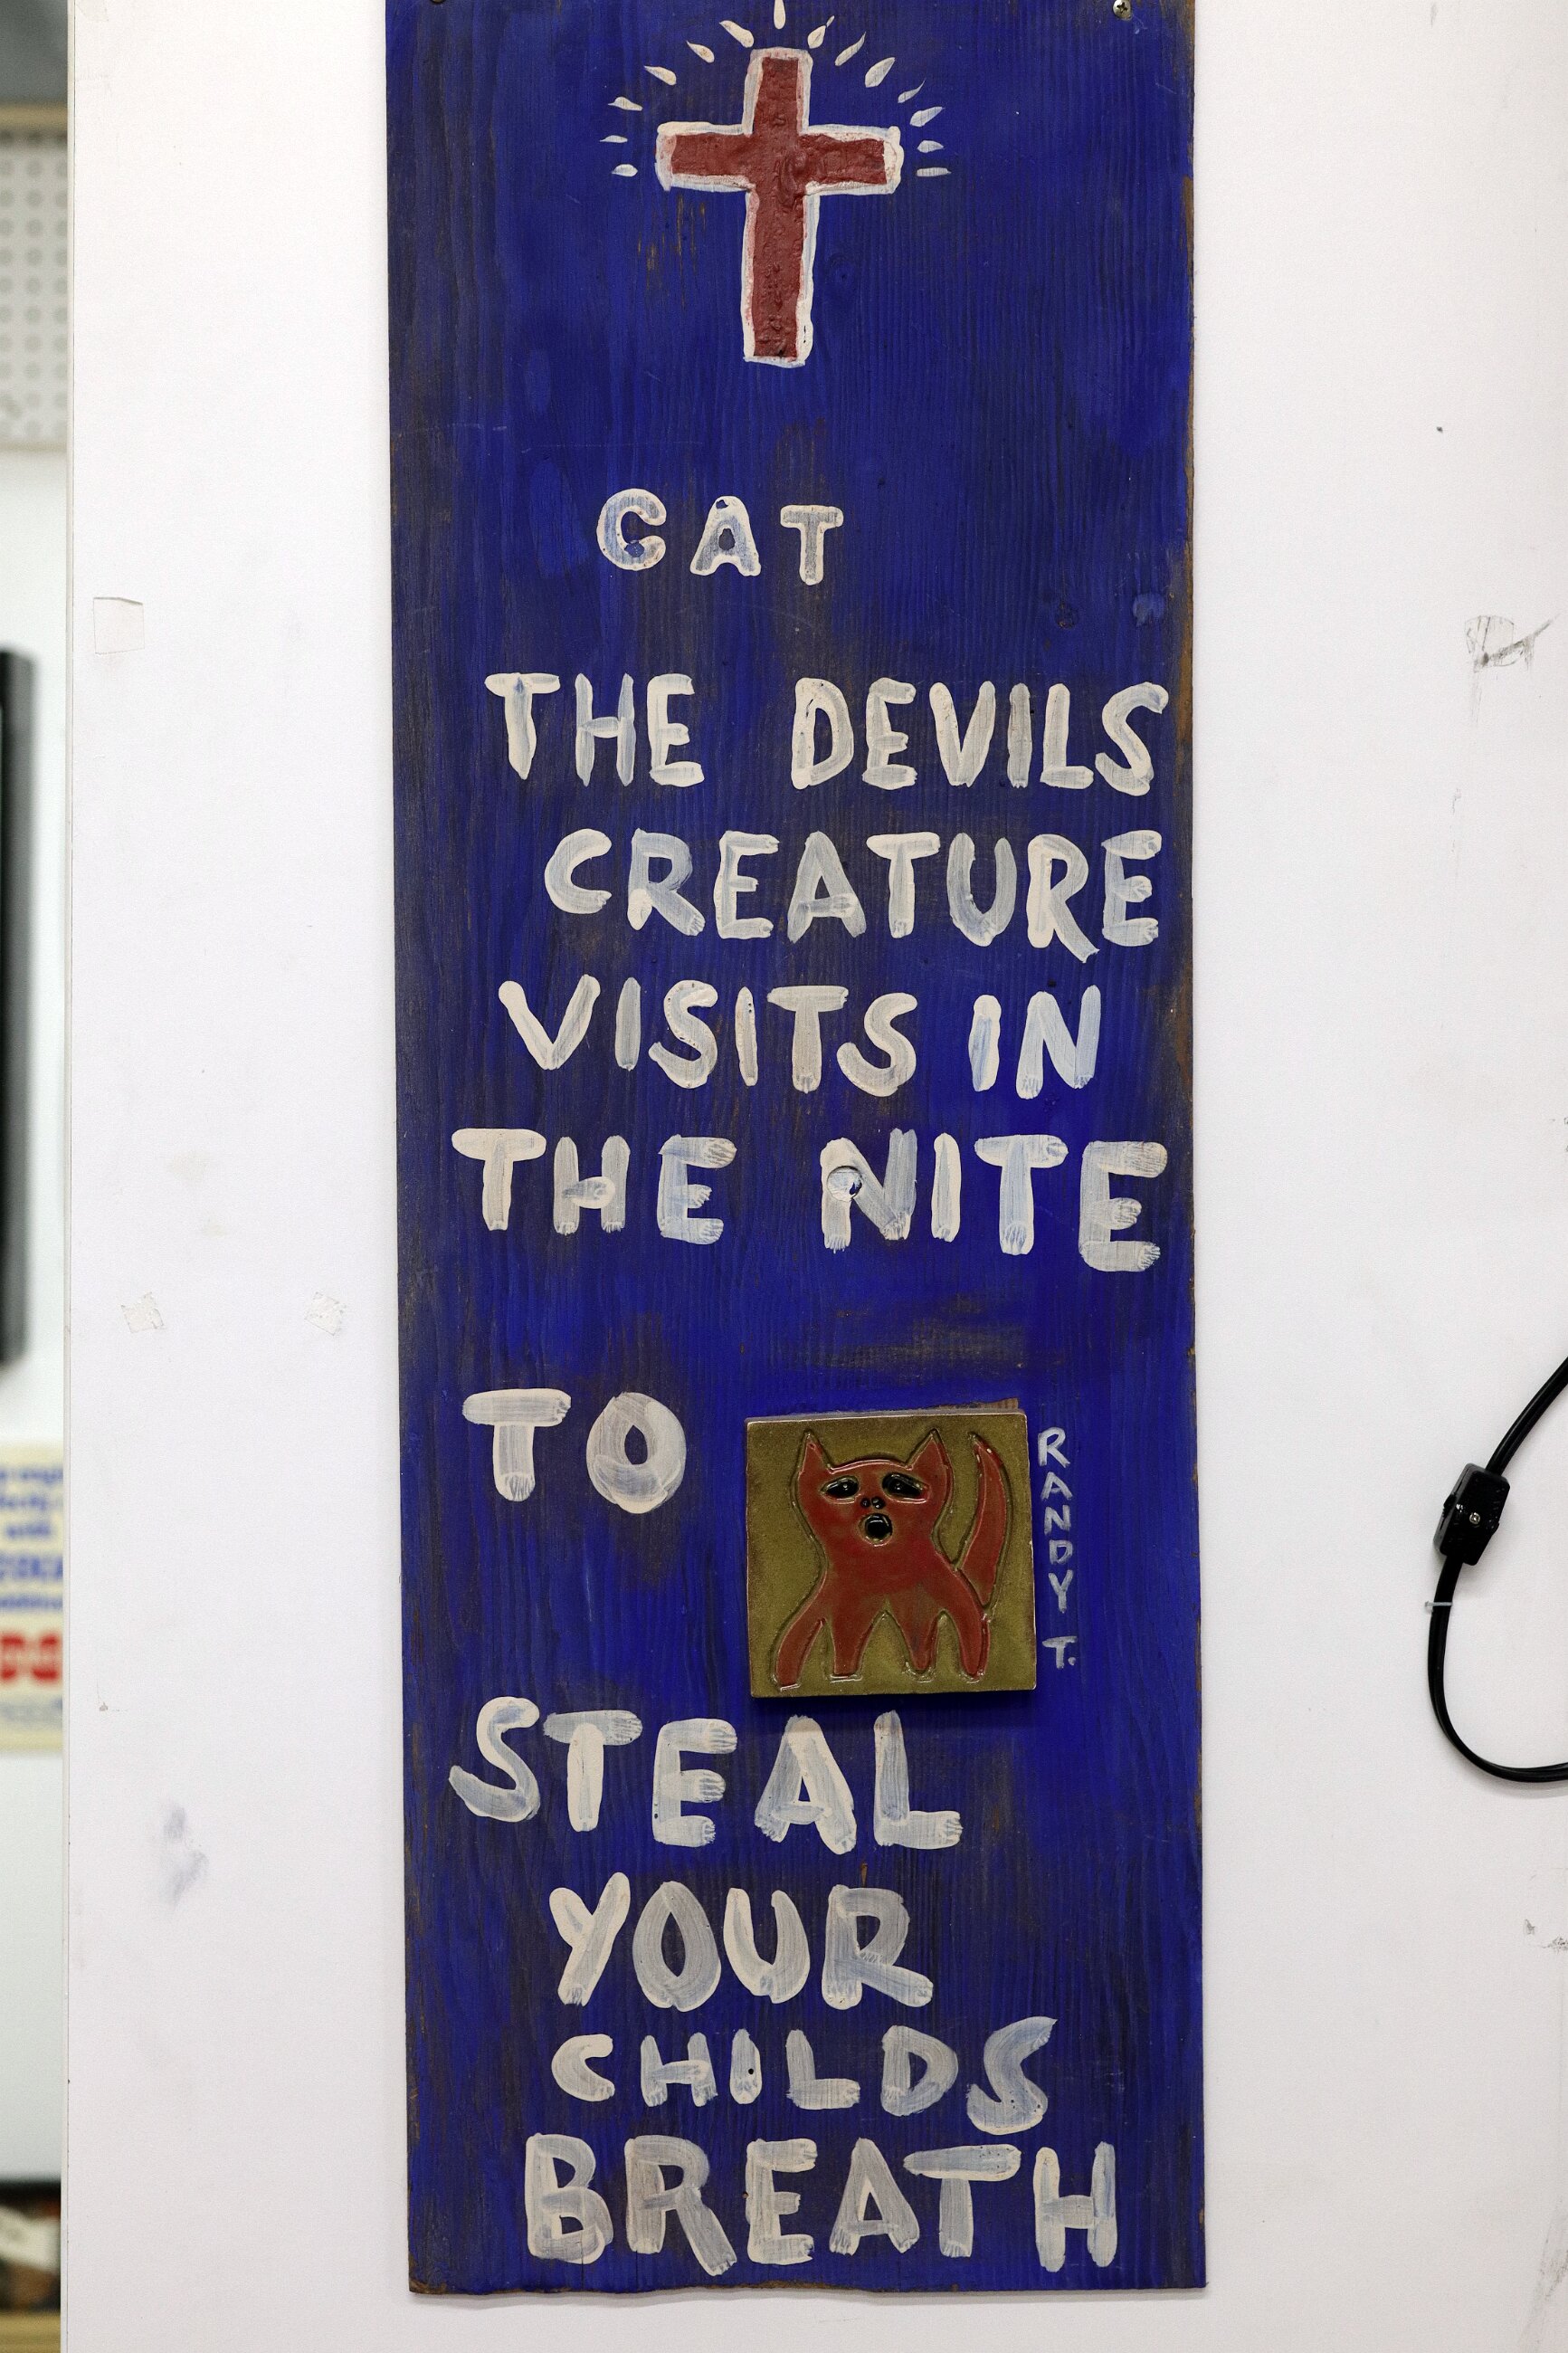 CAT
THE DEVILS
CREATURE
VISITS IN
THE NITE
TO
RANDY T.
STEAL
YOUR
CHILDS
BREATH